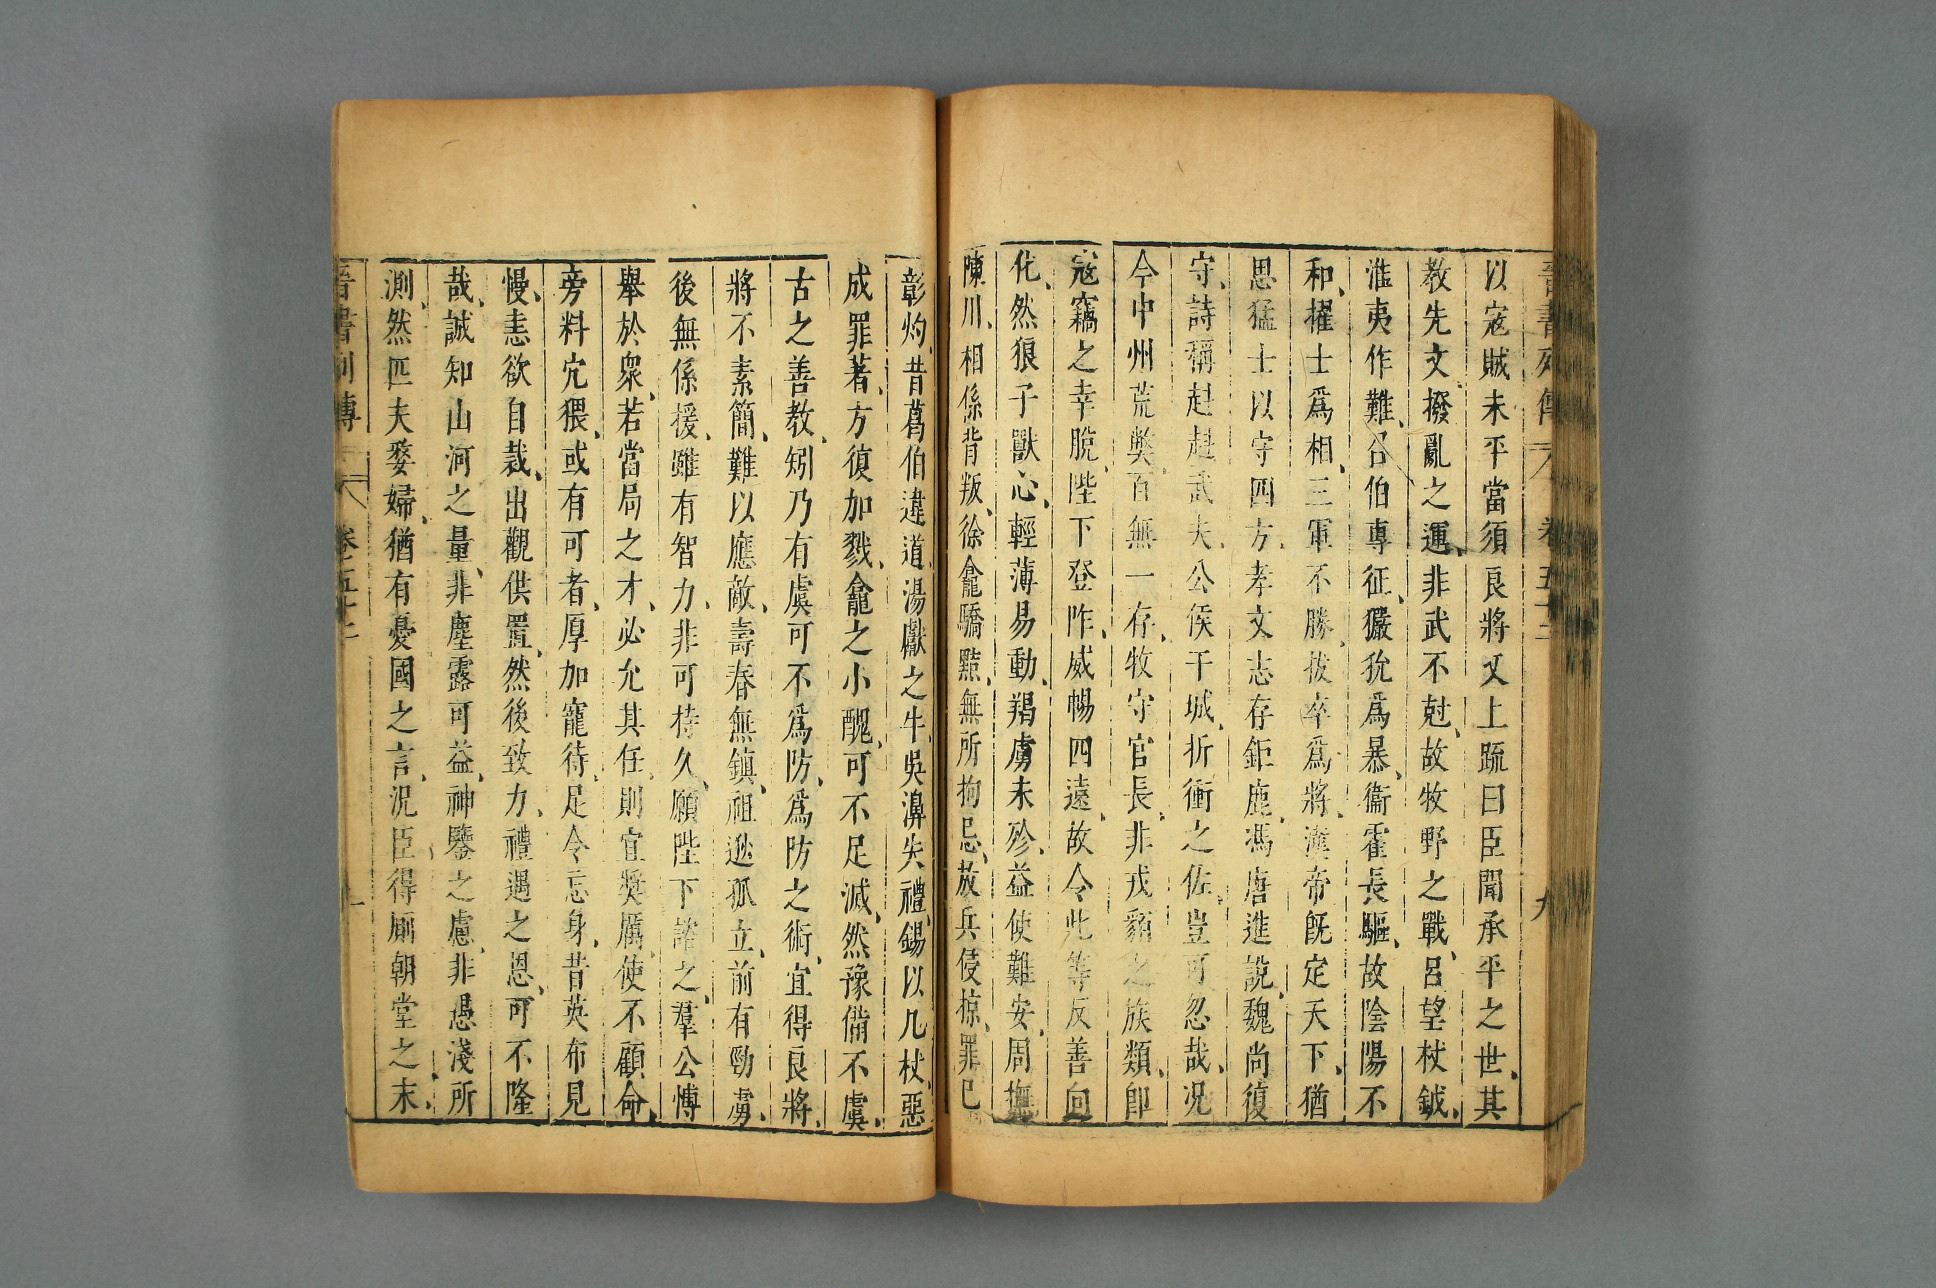 晉書列傳 卷五十二 九
以寇賊未平當須良將又上疏曰臣聞承平之世其
教先文撥亂之運非武不尅故牧野之戰呂望杖鉞
淮夷作難召伯專征玁狁爲暴衞霍長驅故陰陽不
和擢士爲相三軍不勝拔卒爲將漢帝旣定天下猶
思猛士以守四方孝文志存鉅鹿馮唐進說魏尚復
守詩稱赳赳武夫公侯干城折衝之佐豈可忽哉况
今中州荒弊百無一存牧守官長非戎貊之族類卽
寇竊之幸脫陛下登阼威暢四遠故令此等反善向
化然狼子獸心輕薄易動羯虜未殄益使難安周撫
陳川相係背叛徐龕驕黠無所拘忌放兵侵掠罪已
彰灼昔葛伯違道湯獻之牛吳濞失禮錫以几杖惡
成罪著方復加戮龕之小醜可不足滅然豫備不虞
古之善教矧乃有虞可不爲防爲防之術宜得良將
將不素簡難以應敵壽春無鎮祖逖孤立前有勁虜
後無係援雖有智力非可持久願陛下諮之羣公博
舉於衆若當局之才必允其任則宜奬厲使不顧命
旁料宂猥或有可者厚加寵待足令忘身昔英布見
慢恚欲自裁出觀供置然後致力禮遇之恩可不隆
哉誠知山河之量非塵露可益神鑒之慮非愚淺所
測然匹夫嫠婦猶有憂國之言況臣得厠朝堂之末
晉書列傳 卷之五十二